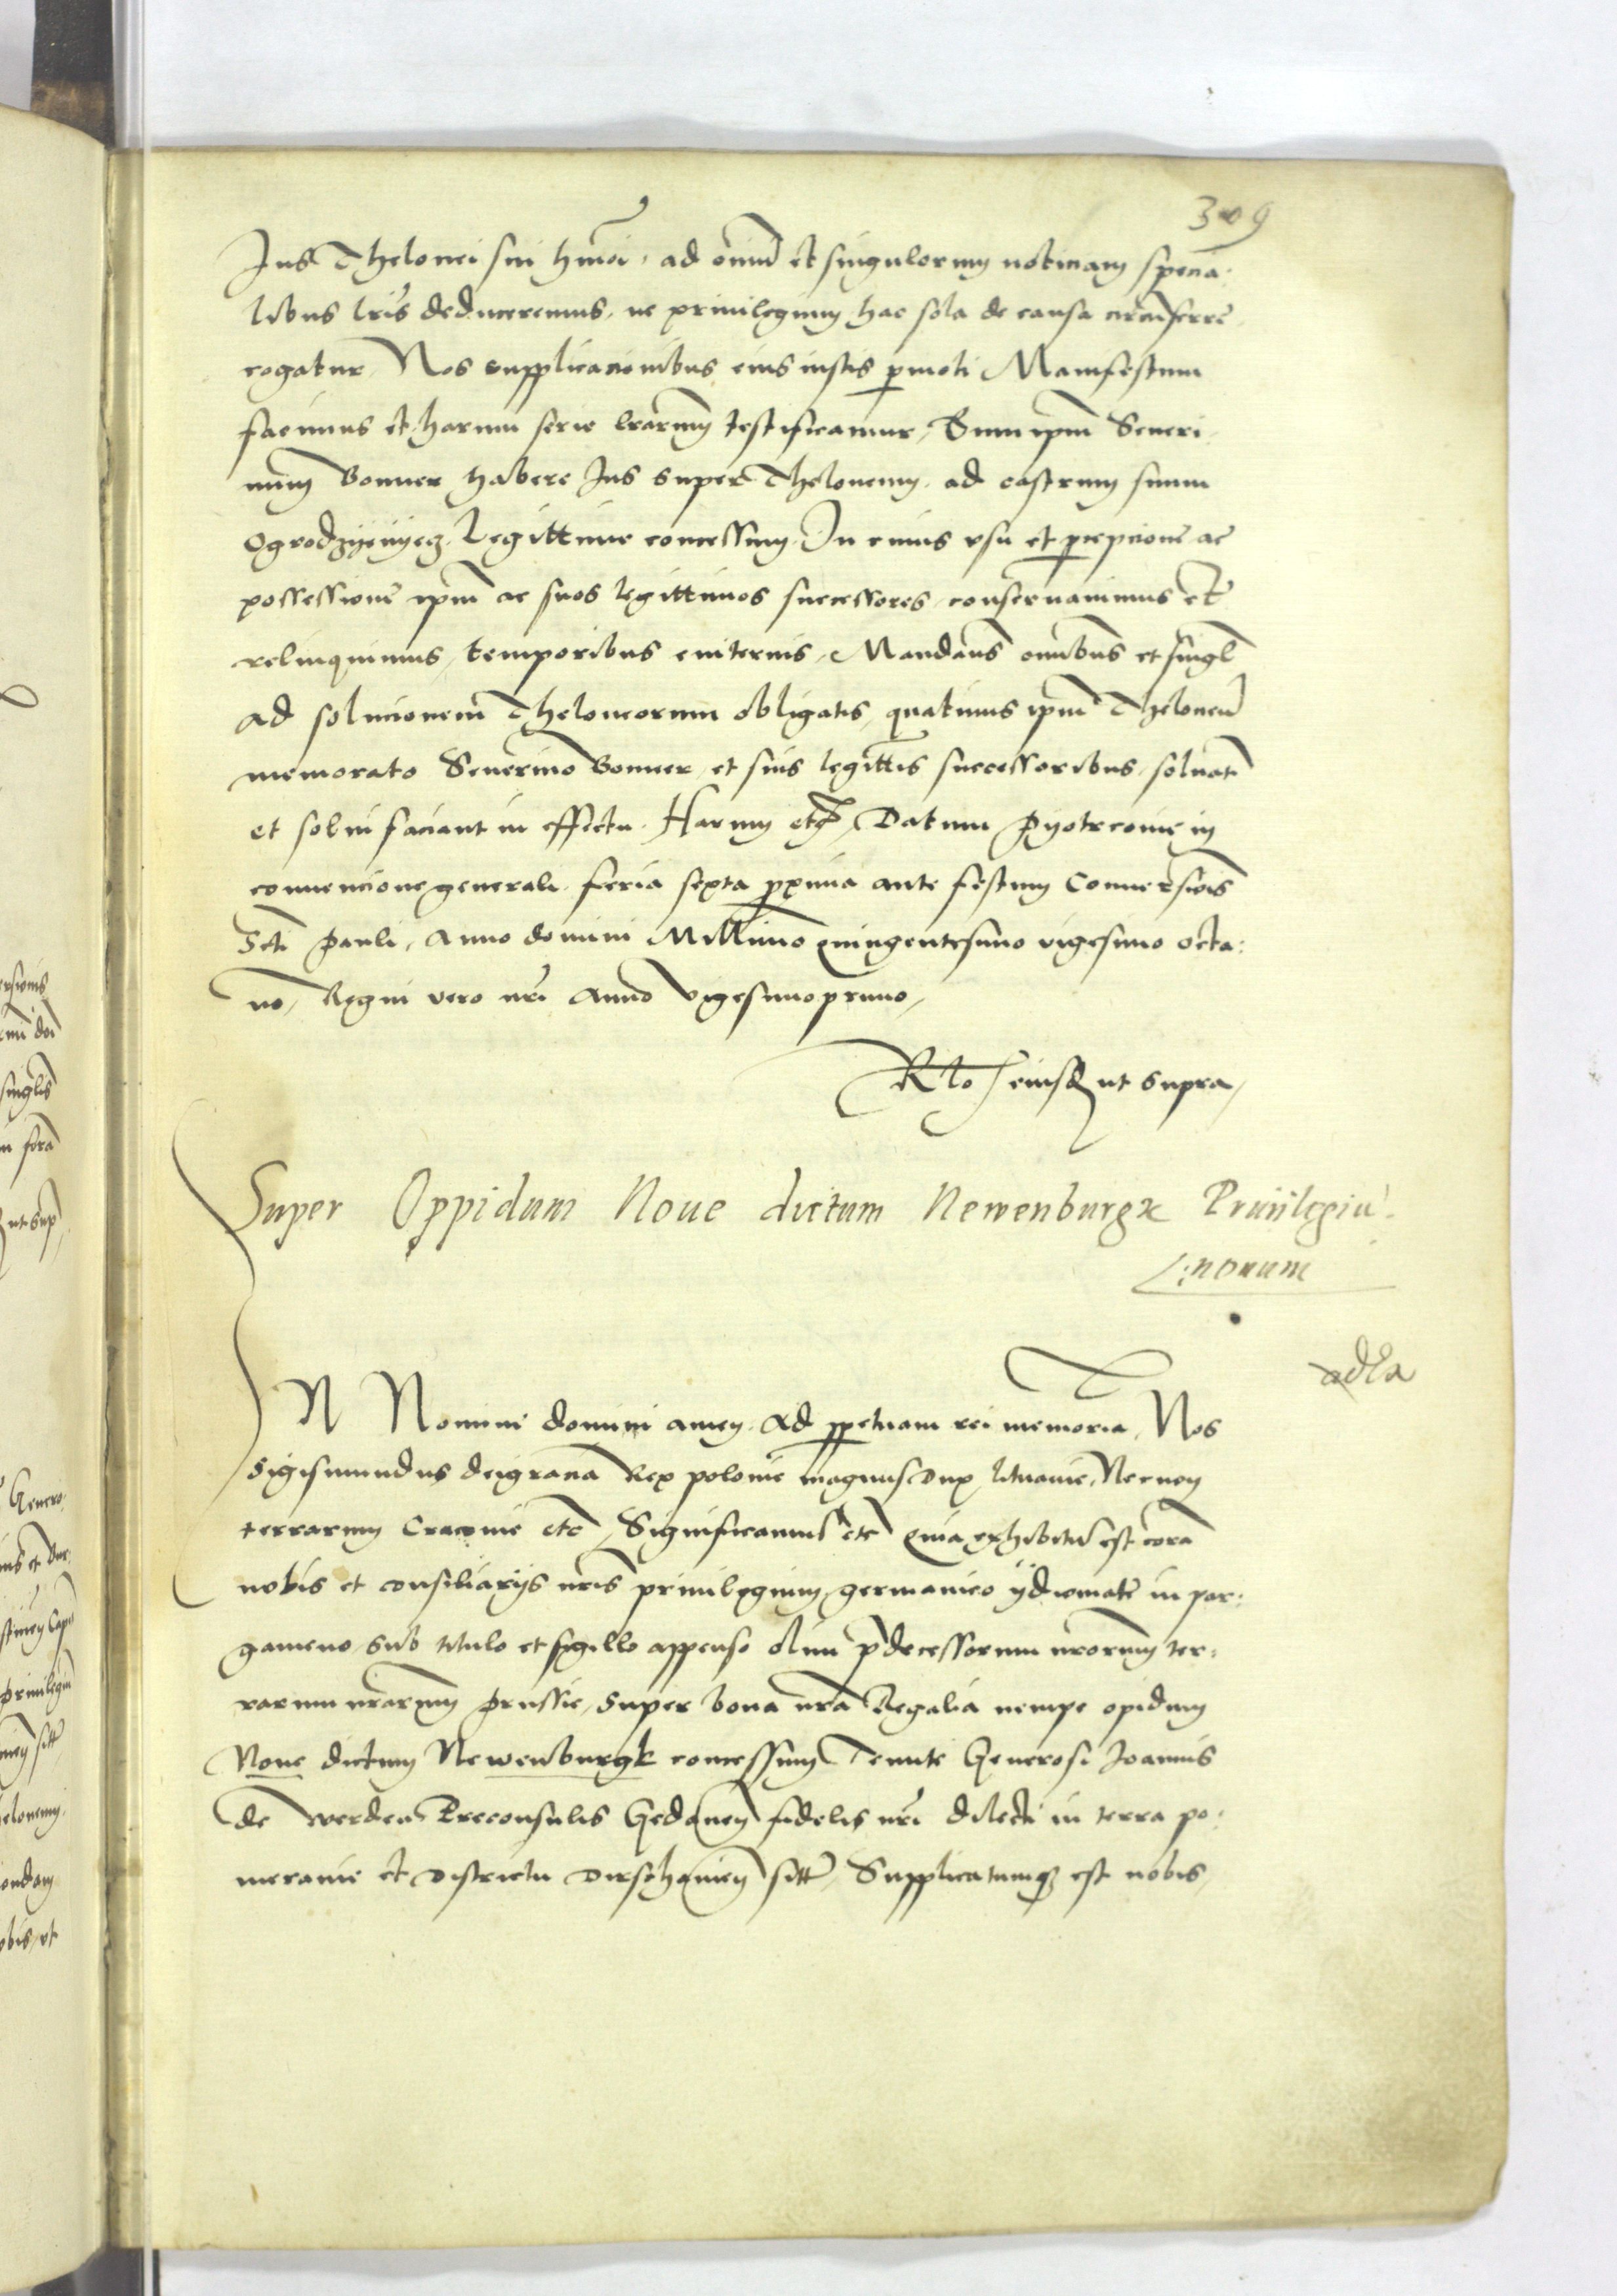 309
Jus Thelonei sui hmoi, ad omniu et singulorum noticiam specia:
libus lris deduceremus, ne privilegium hac sola de causa circumferre
cogatur, Nos supplicacionibus eius iustis pmoti Manifestum
facimus et harum serie lrarum testificamur, Dnum ipm Severi
num Bonner habere Jus super Theloneum, ad castrum suum
Ogrodzyenyecz, Legittime concessum, In cuius usu et pcepcione ac
possessione ipm ac suos legittimos successores conservavimus et
relinquimus, temporibus eviternis, Mandans omnibus et singl
ad solucionem Theloneorum obligatis, quatinus ipm Theloneu
memorato Severino Bonner et suis legittis successoribus, solvat
et solvi faciant in effectu. Harum etc, Datum Pyotrcovie in
convencione generali, feria sexta pxima ante festum Conversiois
Scti Pauli, Anno domini Millimo quingentesimo vigesimo octa:
vo, Regni vero nri Anno vigesimoprimo,
Rlo eiusd ut supra,
Super Oppidum Noue dictum Newenburgk Priuilegiu
:nouum
adla
IN Nomine domini amen, Ad ppetuam rei memoria, Nos
Sigismundus dei gracia Rex polonie magnus Dux lituanie, Necnon
terrarum Cracovie etc, Significamus etc Quia exhibitu est cora
nobis et consiliariis nris privilegium germanico ydiomate in par:
gameno, sub titulo et sigillo appenso olim pdecessorum nrorum ter:
rarum nrarum prussie, super bona nra Regalia nempe opidum
Noue dictum Newenburgk concessum Tenute Generosi Joannis
de Werden Preconsulis Gedanen fidelis nri dilecti in terra po:
meranie et Districtu Dirschavien sitt, Supplicatumq est nobis,